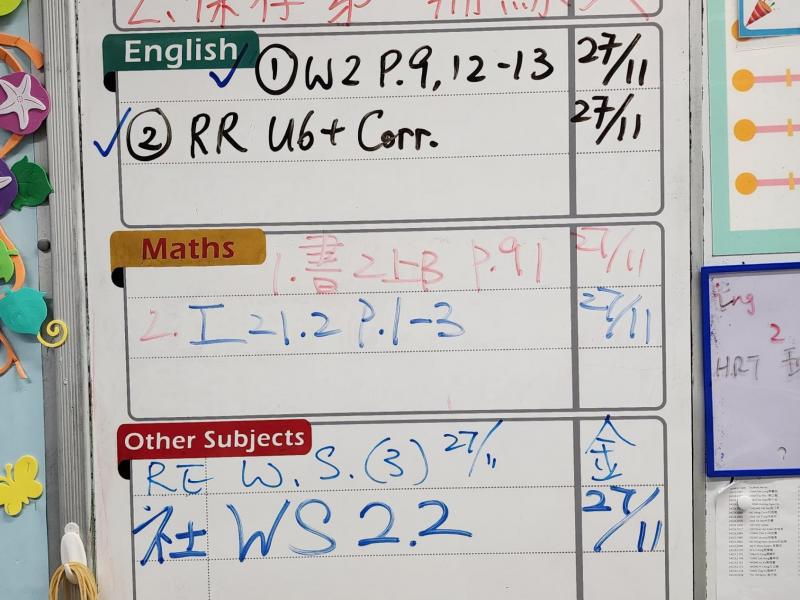 2. 保存第
English
✓ ① W2 P.9, 12-13 27/11
✓ ② RR U6 + Corr. 27/11
Maths
1. 書 2上B P.91 27/11
2. 工 21.2 P.1-3 27/11
Other Subjects
RE W.S.(3) 27/11 金
社 WS 2.2 27/11
Eng
2
HRT